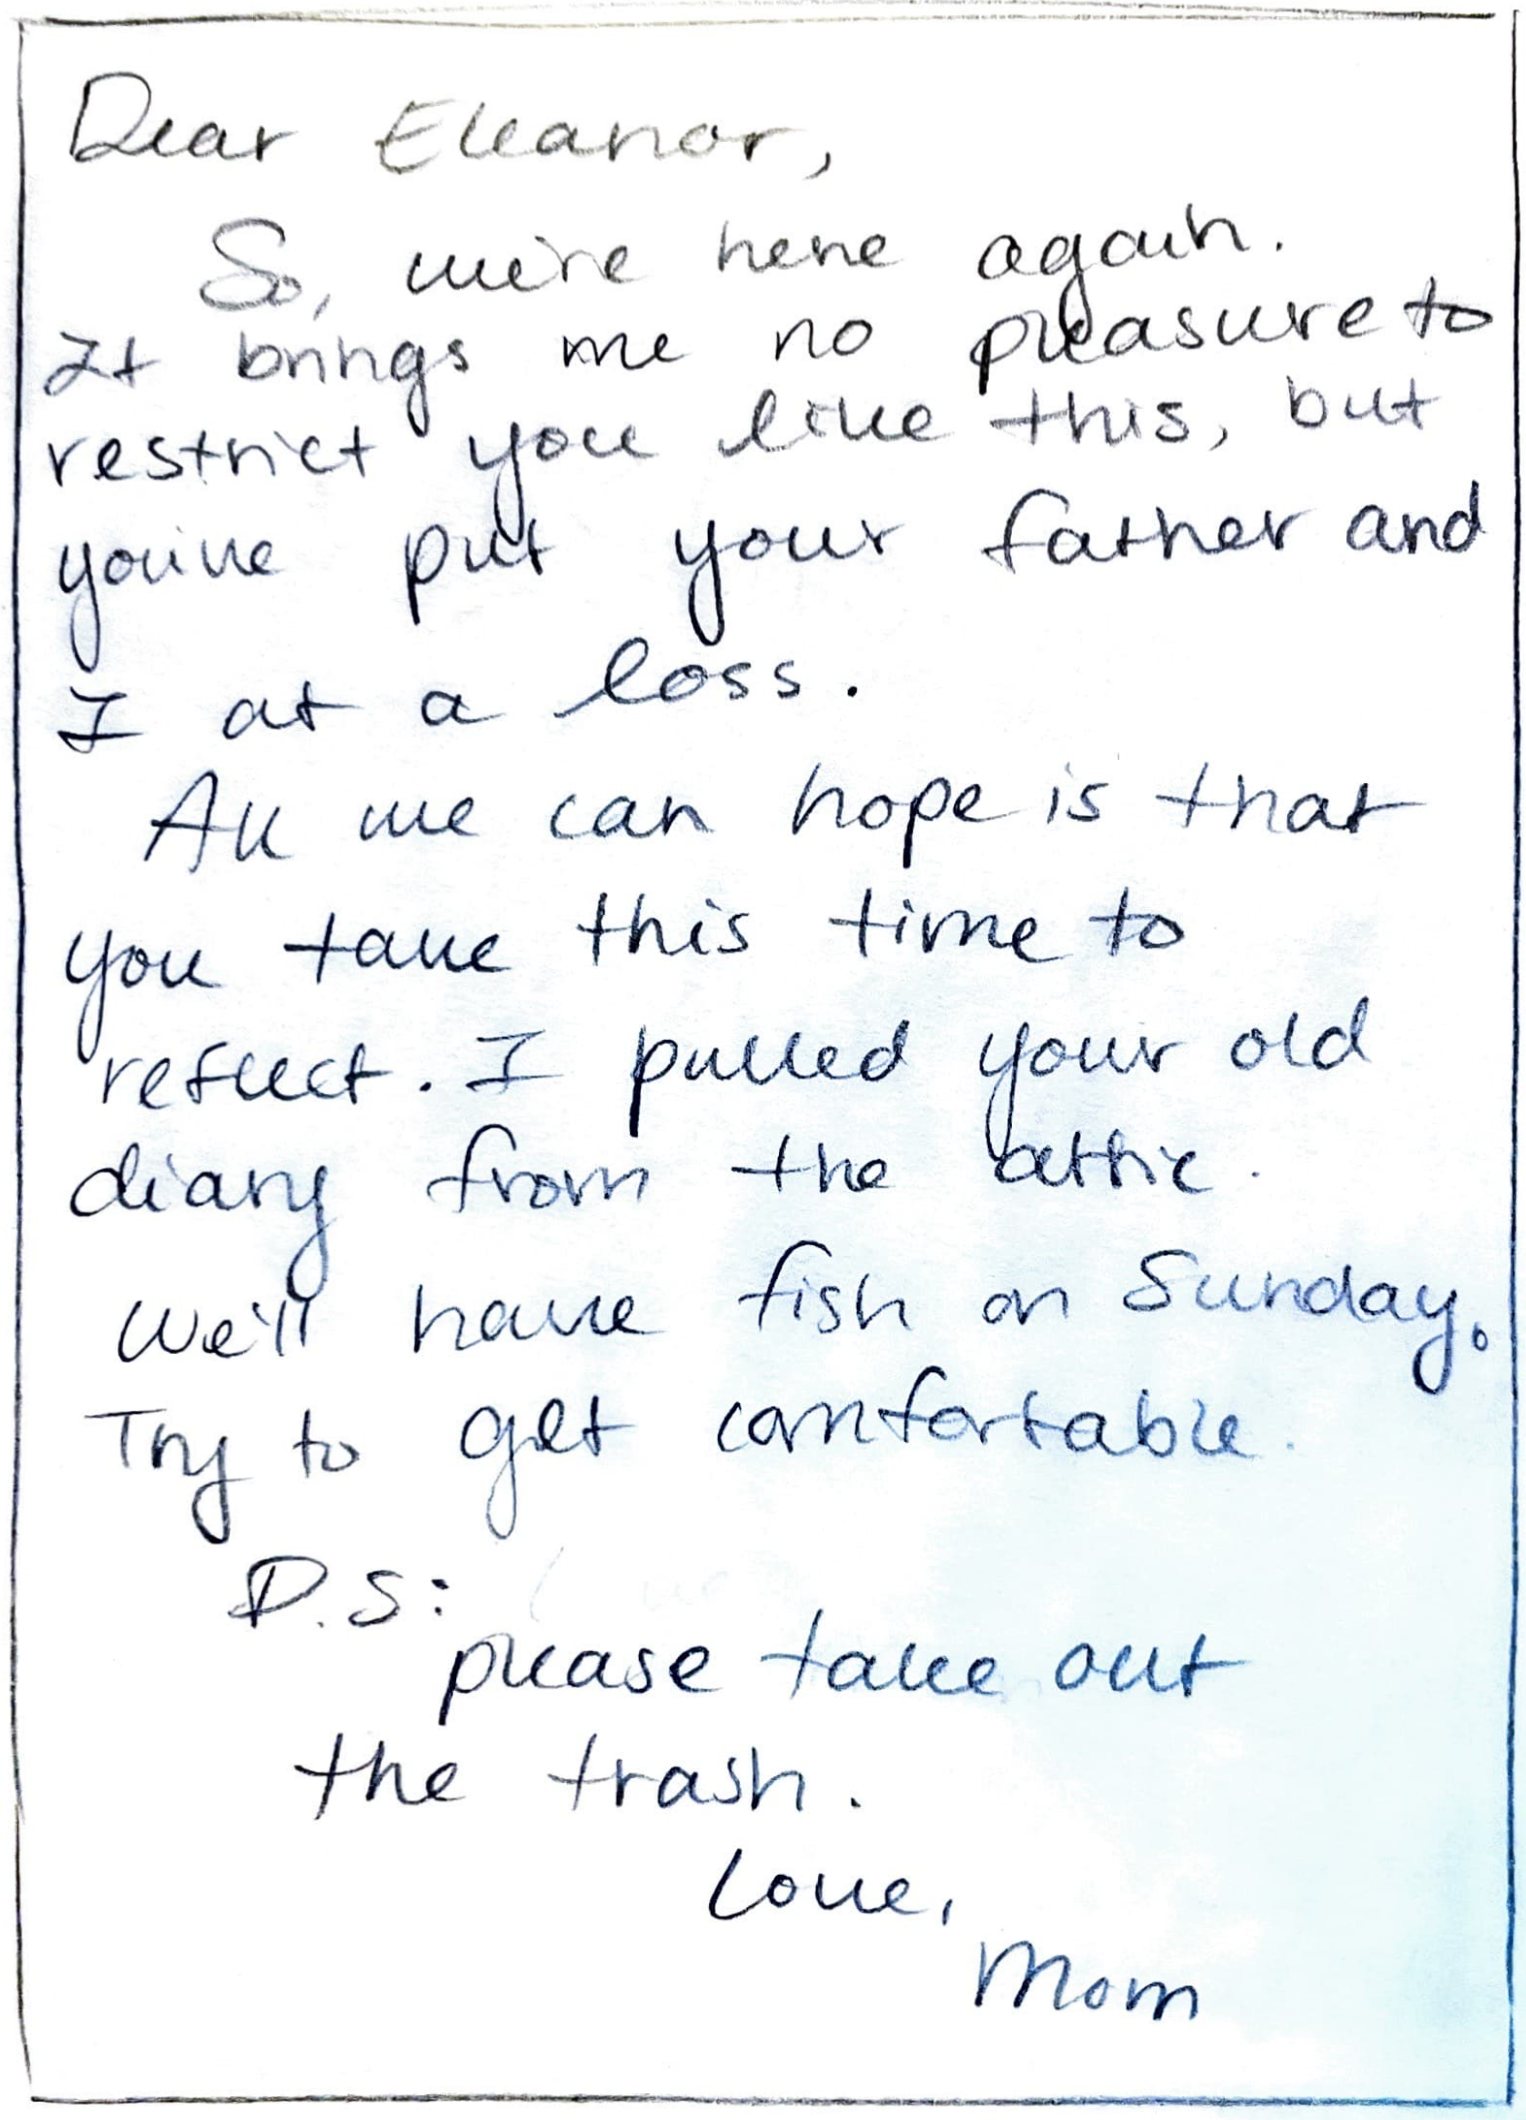 Dear Eleanor,
So, we're here again.
It brings me no pleasure to
restrict you like this, but
you've put your father and
I at a loss.
All we can hope is that
you take this time to
reflect. I pulled your old
diary from the attic.
We'll have fish on Sunday.
Try to get comfortable.
P.S:
please take out
the trash.
Love,
Mom